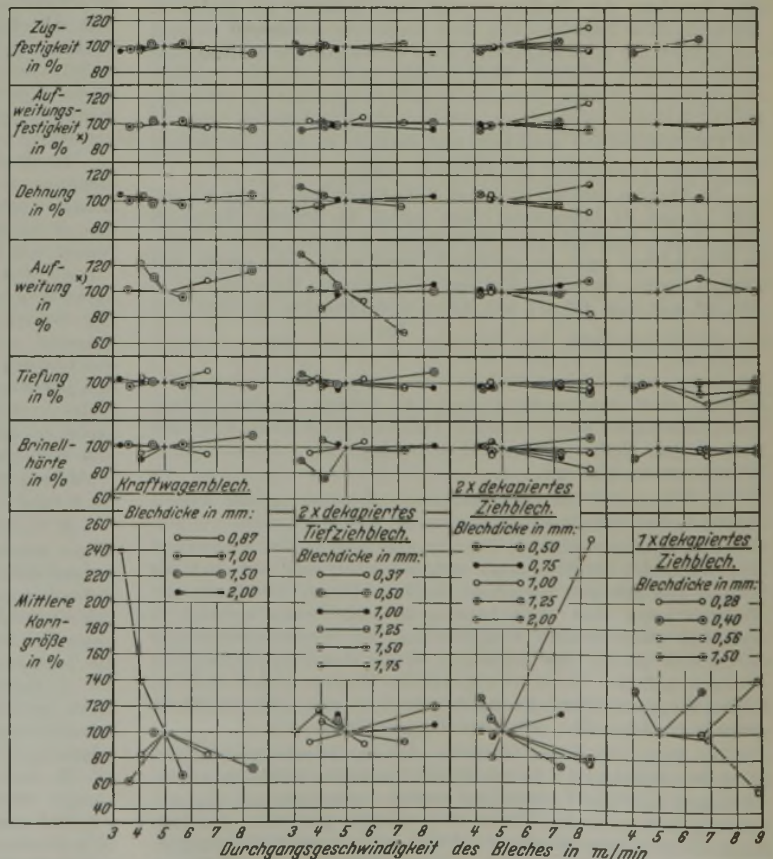 Zug-
festigkeit
in %
120
100
80
Auf-
weitungs-
festigkeit
in % x)
120
100
80
Dehnung
in %
120
100
80
Auf-
weitung x)
in
%
120
100
80
60
Tiefung
in %
100
80
Brinell-
härte
in %
100
80
60
Mittlere
Korn-
größe
in %
260
240
220
200
180
160
140
120
100
80
60
40
Kraftwagenblech.
Blechdicke in mm:
0,87
1,00
1,50
2,00
2x dekapiertes
Tiefziehblech.
Blechdicke in mm:
0,37
0,50
1,00
1,25
1,50
1,75
2x dekapiertes
Ziehblech.
Blechdicke in mm:
0,50
0,75
1,00
1,25
2,00
1x dekapiertes
Ziehblech.
Blechdicke in mm:
0,28
0,40
0,56
1,50
3 4 5 6 7 8 3 4 5 6 7 8 4 5 6 7 8 4 5 6 7 8 9
Durchgangsgeschwindigkeit des Bleches in m/min